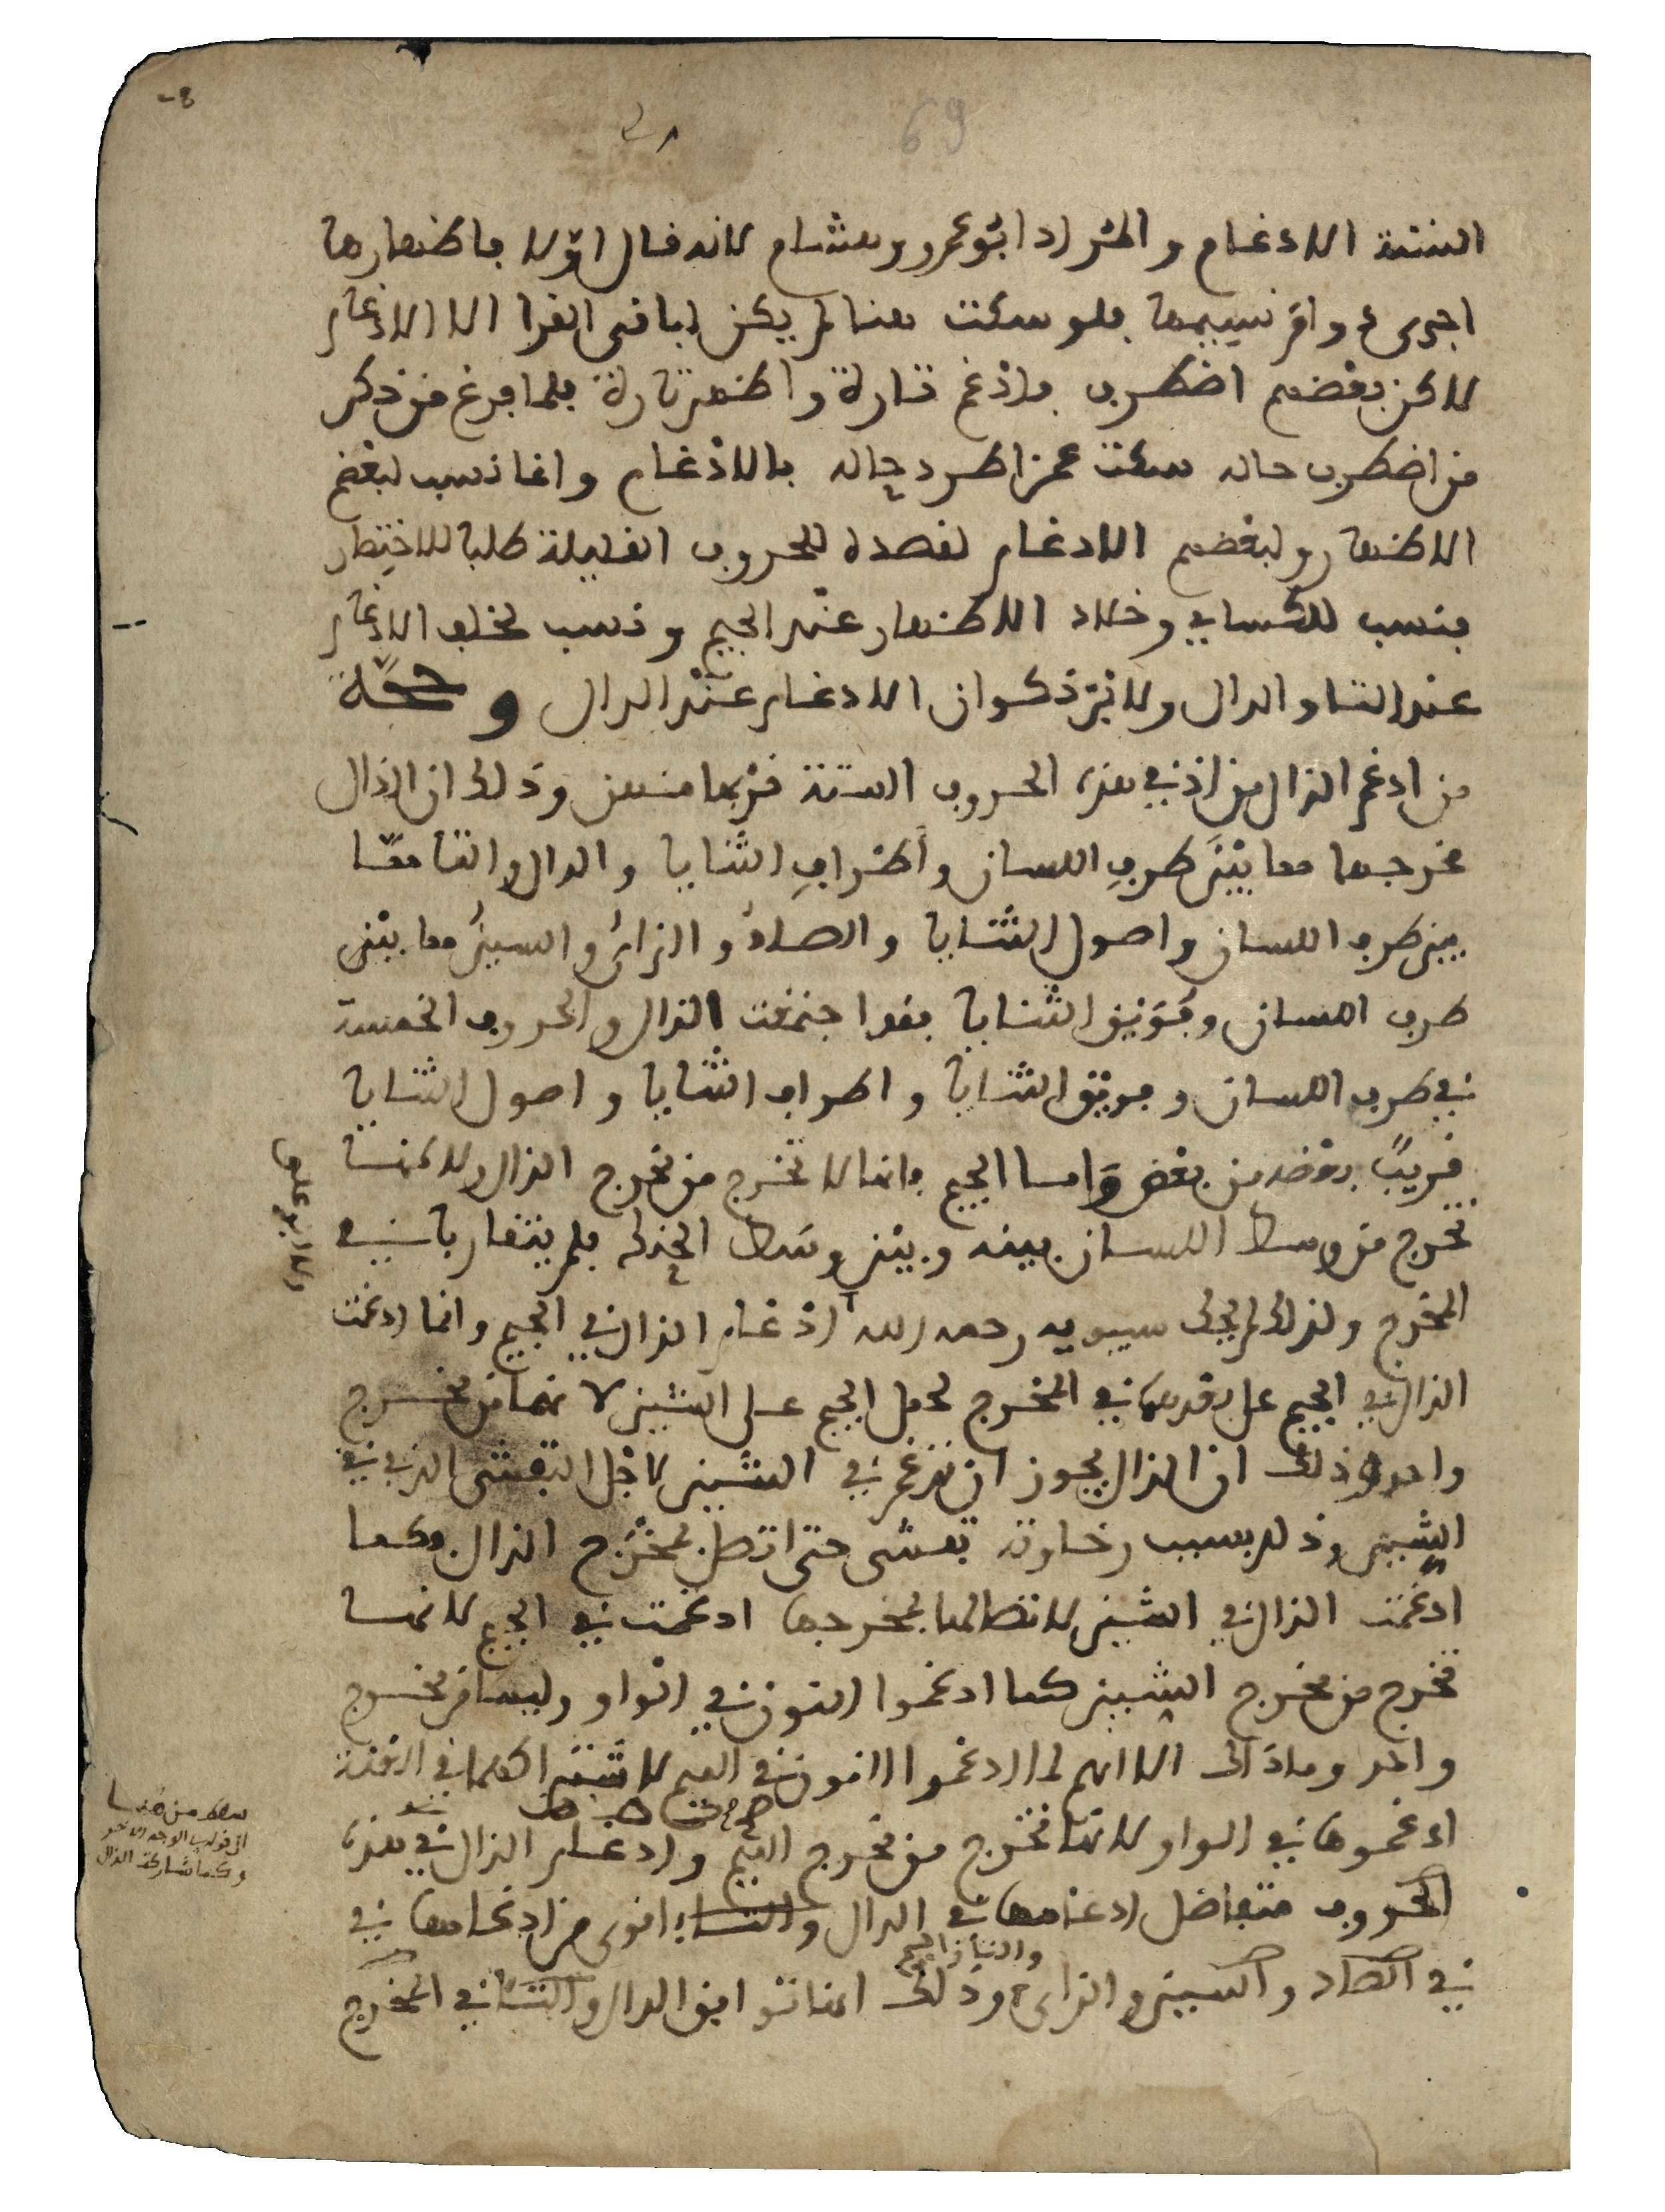 69
الستة الادغام والمراد ابو عمرو وهشام لانه قال اولا فاظهارها
اجرى دوام نسيمها فلو سكت هنا لم يكن لباقى القرا الا الادغام
لاكن بعضهم اضطرب فادغم تارة واظهر تارة فلما فرغ من ذكر
من اضطرب حاله سكت عمن اطرد حاله بالادغام وانما نسب لبعضهم
الاظهار ولبعضهم الادغام لقصده للحروف القليلة طلبا للاختصار
فنسب للكساىي وخلاد الاظهار عند الجيم ونسب لخلف الادغام
عند التا والدال ولابن ذكوان الادغام عند الدال وحجة
من ادغم الذال من اذ في هذه الحروف الستة قربها منهن وذلك ان الذال
مخرجها مما بين طرف اللسان وأطراف الثنايا والدال والتا مما
بين طرف اللسان واصول الثنايا والصاد والزاي والسين مما بين
طرف اللسان وفويق الثنايا فقد اجتمعت الذال والحروف الخمسة
في طرف اللسان وفويق الثنايا واطراف الثنايا واصول الثنايا
قريب بعضه من بعض واما الجيم فانها لا تخرج من مخرج الذال ولاكنها
تخرج من وسط اللسان بينه وبين وسط الحنك فلم يتقاربا في
المخرج ولذلك لم يحك سيبويه رحمه الله ادغام الذال في الجيم وانما ادغمت
الذال في الجيم على بعدها في المخرج لحمل الجيم على الشين لا نهما من مخرج
واحد وذلك ان الذال يجوز ان تدغم في الشين لاجل التفشى الذي في
الشين وذلك بسبب رخاوته تفشى حتى اتصل بمخرج الذال وكما
ادغمت الذال في الشين لاتصالها بمخرجها ادغمت في الجيم لانها
تخرج من مخرج الشين كما ادغموا النون في الواو وليسا من مخرج
واحد وماذاك الا انهم لما ادغموا النون في الميم لاشتراكهما في الغنة
ادغموها في الواو لانها تخرج من مخرج الميم وادغام الذال في هذه
الحروف متفاضل ادغامها في الدال والتا اقوى من ادغامها في
والتا والجيم
في الصاد والسين والزاي وذلك انها توافق الدال والتا في المخرج
سقط من هنا
الى قوله الوجه الاخر
وكما تشارك الذال